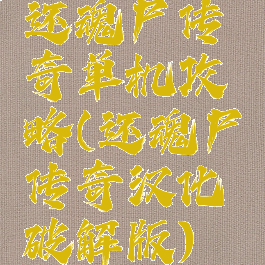 还魂尸传
奇单机攻
略(还魂尸
传奇汉化
破解版)